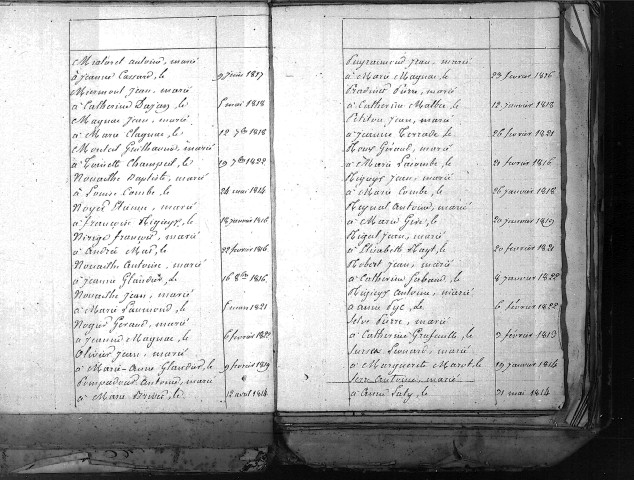 Miatoret antoine, marié
à Jeanne Cassard, le 9 juin 1817
Miermont Jean, marié
à Catherine Dajean, le 8 mai 1818
Magnac Jean, marié
à Marie Clagnac, le 12 7bre 1818
Monteil Guilhaumé, marié
à Toinette Champeil, le 19 7bre 1822
Nouaithe Baptiste, marié
à Louise Combe, le 24 mai 1814
Noyer Etienne, marié
à françoise le 18 janvier 1816
françois, marié
à Andrée Mas, le 22 février 1816
Nouaithe Antoine, marié
à Jeanne Glandier, le 16 8bre 1816
Nouaithe Jean, marié
à Marie le 8 mars 1821
Nogué Geraud, marié
à Jeanne Magnac, le 6 février 1822
Olivier Jean, marié
à Marie-Anne Glandier, le 9 février 1819
Pompadour Antoine, marié
à Marie le 12 avril 1814
Puyraimond Jean, marié
à Marie Magnac, le 23 février 1816
Pradinet Pierre, marié
à Catherine Mathe, le 12 janvier 1818
Petitou Jean, marié
à Jeanne Terrade, le 26 février 1821
Geraud, marié
à Marie Lacombe, le 21 février 1816
Jean, marié
à Marie Combe, le 26 janvier 1818
Reynal Antoine, marié
à Marie le 20 janvier 1819
Rigal Jean, marié
à Elisabeth le 20 février 1821
Robert Jean, marié
à Catherine le 8 janvier 1822
Antoine, marié
à anne Pyc, le 6 février 1822
Selve Pierre, marié
à Catherine le 9 février 1813
Leonard, marié
à Marguerite Marot, le 19 janvier 1814
Serre Antoine, marié
à Anne Laly, le 31 mai 1814